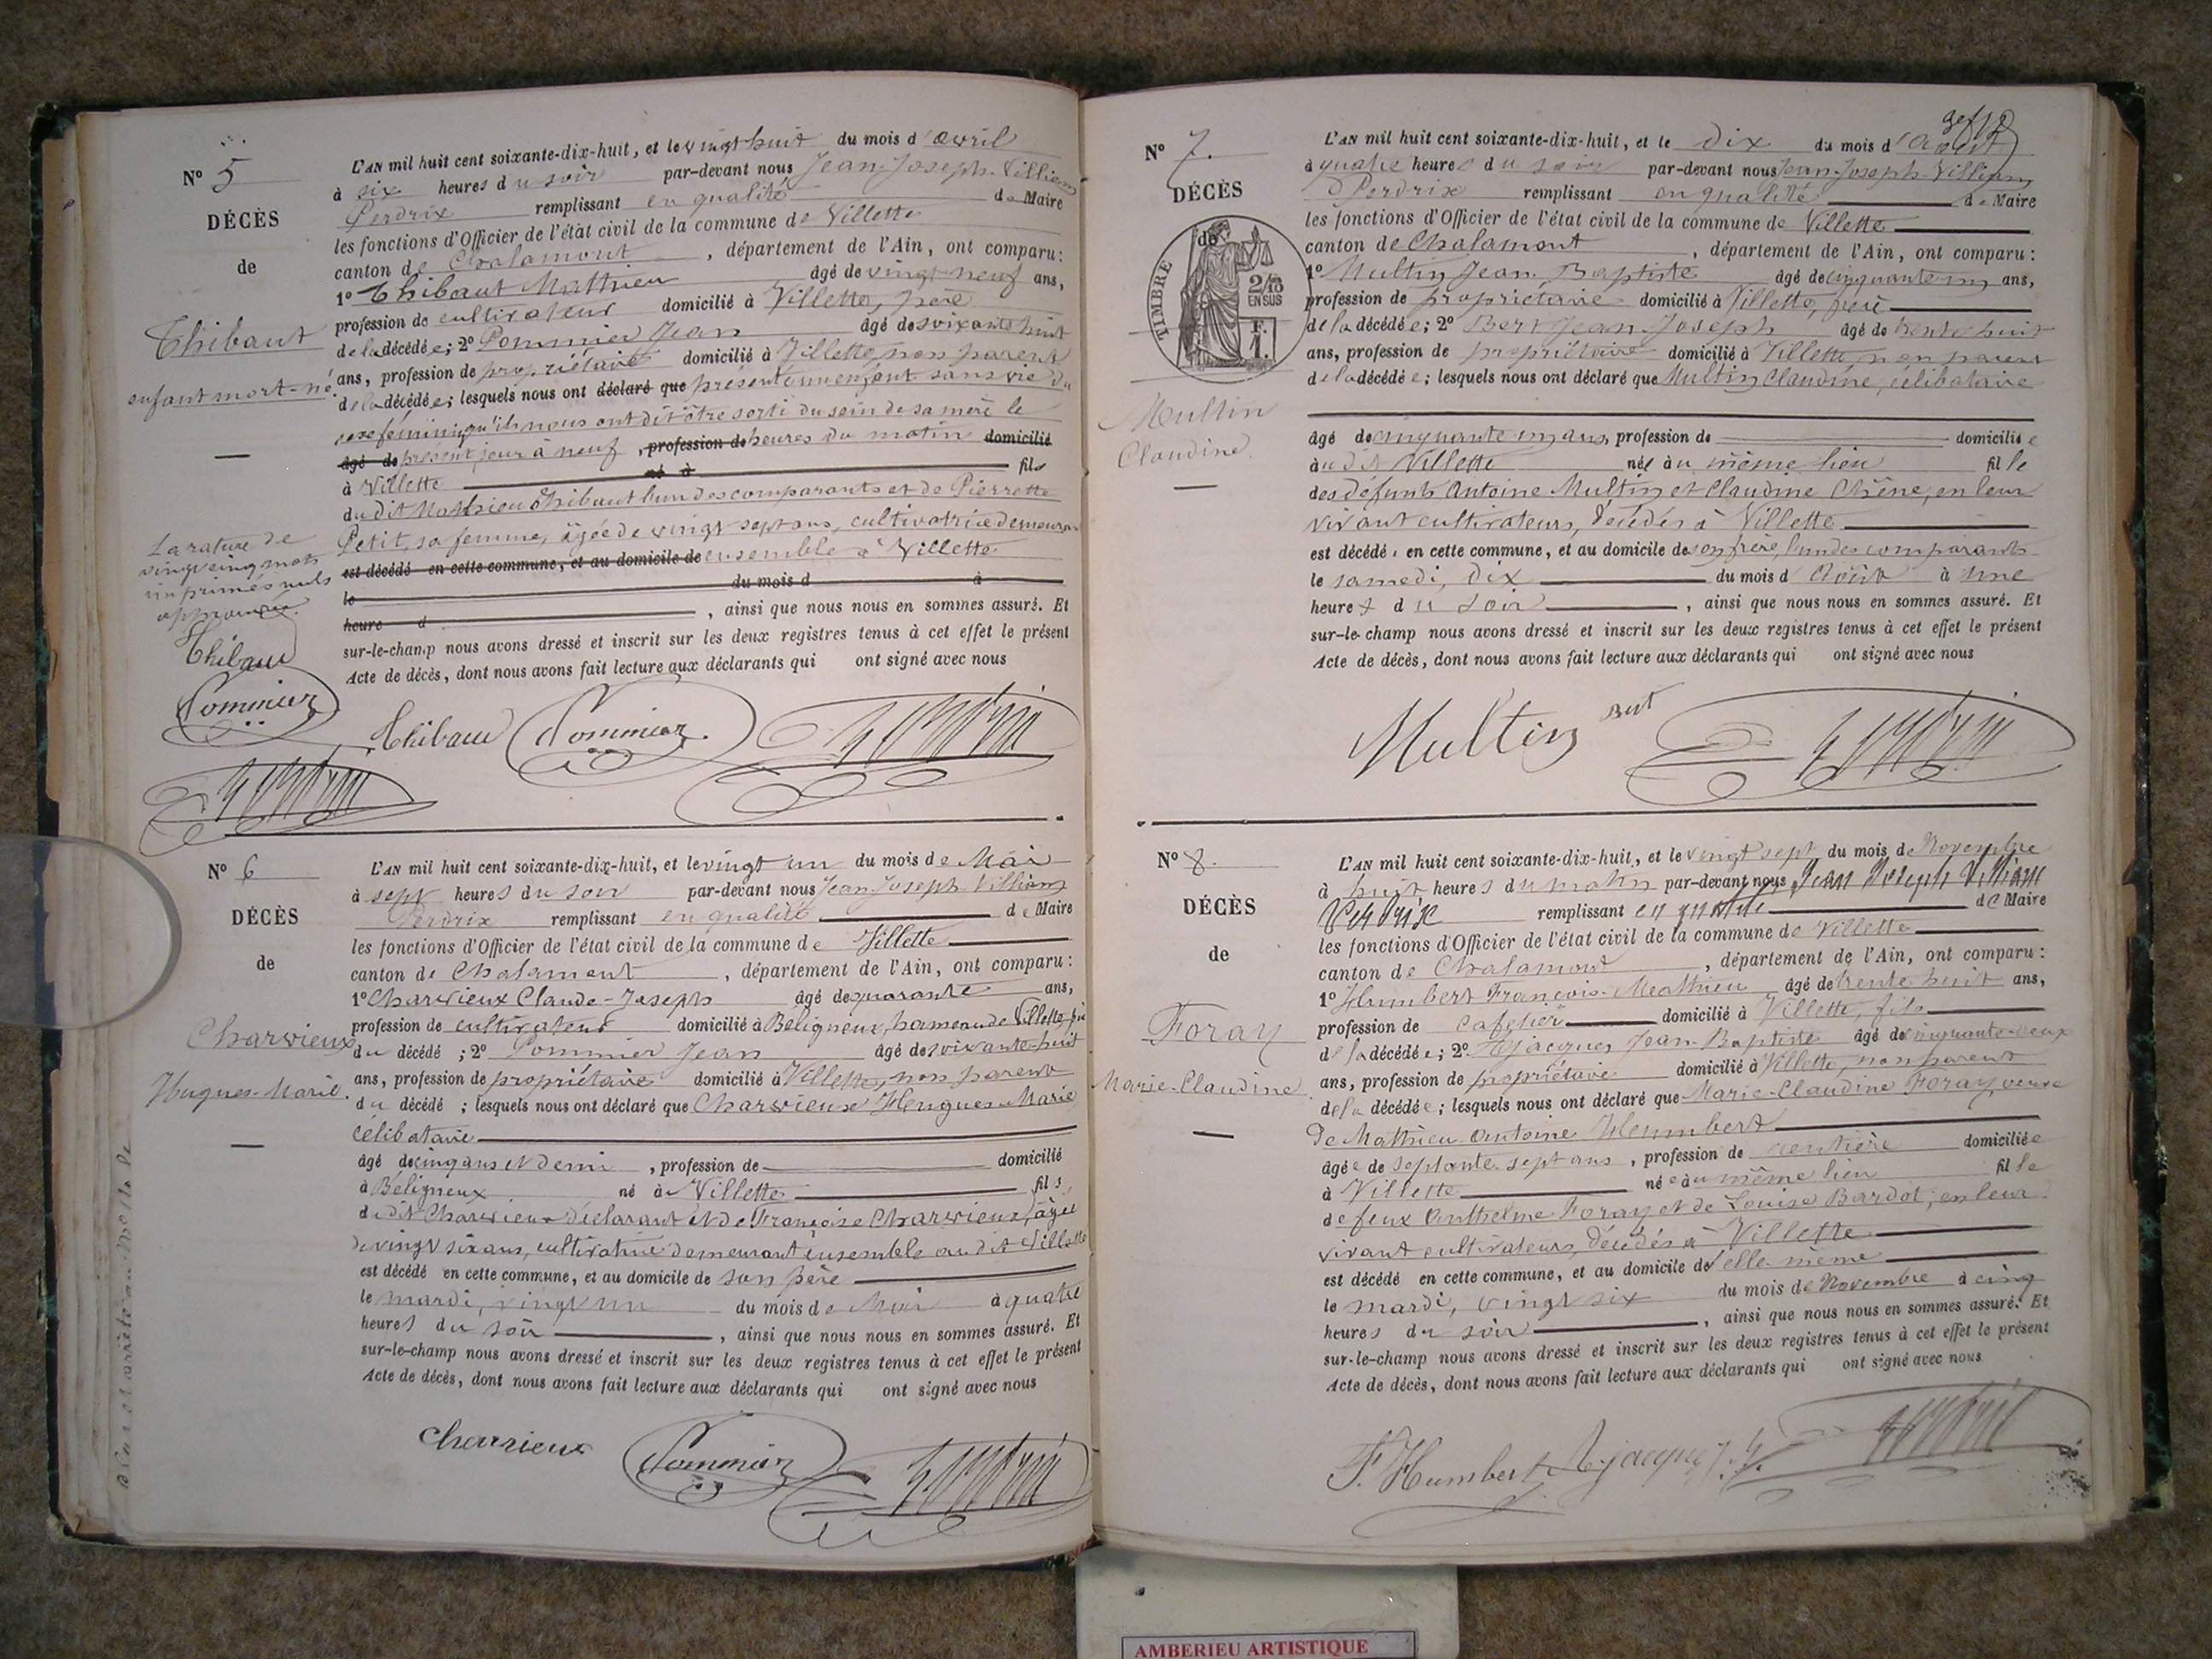 N° 5
DÉCÈS
de
Thibaut
enfant mort-né
L'AN mil huit cent soixante-dix-huit, et le vingt huit du mois d'avril
à six heures du soir par-devant nous Jean-Joseph-Villiam
Perdrix remplissant en qualité de Maire
les fonctions d'Officier de l'état civil de la commune de Villette
canton de Chalamont, département de l'Ain, ont comparu:
1° Thibaut Mathieu âgé de vingt-neuf ans,
profession de cultivateur domicilié à Villette, père
de la décédée; 2° Pommier Jean âgé de soixante huit
ans, profession de propriétaire domicilié à Villette, non parent
de la décédée; lesquels nous ont déclaré que présenté un enfant sans vie du
sexe féminin, qu'ils nous ont dit être sorti du sein de sa mère le
âgé de présent jour à neuf, profession de heures du matin domicilié
à Villette né à fils
du dit Mathieu Thibaut l'un des comparants et de Pierrette
Petit, sa femme, âgée de vingt sept ans, cultivatrice demeurant
est décédé en cette commune, et au domicile de ensemble à Villette
le du mois d à
heure d , ainsi que nous nous en sommes assuré. Et
sur-le-champ nous avons dressé et inscrit sur les deux registres tenus à cet effet le présent
Acte de décès, dont nous avons fait lecture aux déclarants qui ont signé avec nous
La rature de
vingt cinq mots
imprimés nuls
approuvée.
Thibaut
Pommier
Thibaut Pommier Perdrix
Perdrix
N° 6
DÉCÈS
de
Charvieux
Hugues-Marie.
L'AN mil huit cent soixante-dix-huit, et le vingt un du mois de Mai
à sept heures du soir par-devant nous Jean Joseph Villiam
Perdrix remplissant en qualité de Maire
les fonctions d'Officier de l'état civil de la commune de Villette
canton de Chalamont, département de l'Ain, ont comparu:
1° Charvieux Claude-Joseph âgé de quarante ans,
profession de cultivateur domicilié à Béligneux, hameau de Villette, père
du décédé; 2° Pommier Jean âgé de soixante-huit
ans, profession de propriétaire domicilié à Villette, non parent
du décédé; lesquels nous ont déclaré que Charvieux Hugues-Marie
célibataire
âgé de cinq ans et demi, profession de domicilié
à Béligneux né à Villette fils
du dit Charvieux déclarant et de Françoise Charvieux, âgée
de vingt six ans, cultivatrice demeurant ensemble au dit Villette
est décédé en cette commune, et au domicile de son père
le mardi, vingt un du mois de Mai à quatre
heures du soir, ainsi que nous nous en sommes assuré. Et
sur-le-champ nous avons dressé et inscrit sur les deux registres tenus à cet effet le présent
Acte de décès, dont nous avons fait lecture aux déclarants qui ont signé avec nous
Charvieux Pommier Perdrix
N° 7.
DÉCÈS
de
TIMBRE
2/10
EN SUS
F.
1.
Multin
Claudine.
L'AN mil huit cent soixante-dix-huit, et le dix du mois d'août
à quatre heures du soir par-devant nous Jean-Joseph-Villiam
Perdrix remplissant en qualité de Maire
les fonctions d'Officier de l'état civil de la commune de Villette
canton de Chalamont, département de l'Ain, ont comparu:
1° Multin Jean-Baptiste âgé de cinquante un ans,
profession de propriétaire domicilié à Villette, frère
de la décédée; 2° Bert Jean-Joseph âgé de trente huit
ans, profession de propriétaire domicilié à Villette, non parent
de la décédée; lesquels nous ont déclaré que Multin Claudine, célibataire
âgé de cinquante un ans, profession de domicilié e
au dit Villette née au même lieu fille
des défunts Antoine Multin et Claudine Chêne, en leur
vivant cultivateurs, décédés à Villette
est décédé e en cette commune, et au domicile de son frère l'un des comparants
le samedi, dix du mois d'Août à une
heure du soir, ainsi que nous nous en sommes assuré. Et
sur-le-champ nous avons dressé et inscrit sur les deux registres tenus à cet effet le présent
Acte de décès, dont nous avons fait lecture aux déclarants qui ont signé avec nous
Multin Bert Perdrix
N° 8.
DÉCÈS
de
Foray
Marie-Claudine.
L'AN mil huit cent soixante-dix-huit, et le vingt sept du mois de Novembre
à huit heures du matin par-devant nous Jean Joseph Villiam
Perdrix remplissant en qualité de Maire
les fonctions d'Officier de l'état civil de la commune de Villette
canton de Chalamont, département de l'Ain, ont comparu:
1° Humbert François-Mathieu âgé de trente huit ans,
profession de cafetier domicilié à Villette, fils
de la décédée; 2° Jean-Baptiste âgé de cinquante-deux
ans, profession de propriétaire domicilié à Villette, non parent
de la décédée; lesquels nous ont déclaré que Marie-Claudine Foray, veuve
de Mathieu-Antoine Humbert
âgée de septante sept ans, profession de rentière domiciliée
à Villette née au même lieu fille
de feux Anthelme Foray et de Louise Bardot, en leur
vivant cultivateurs, décédés à Villette
est décédé en cette commune, et au domicile d'elle même
le mardi, vingt six du mois de Novembre à cinq
heures du soir, ainsi que nous nous en sommes assuré. Et
sur-le-champ nous avons dressé et inscrit sur les deux registres tenus à cet effet le présent
Acte de décès, dont nous avons fait lecture aux déclarants qui ont signé avec nous
F. Humbert Perdrix
AMBERIEU ARTISTIQUE